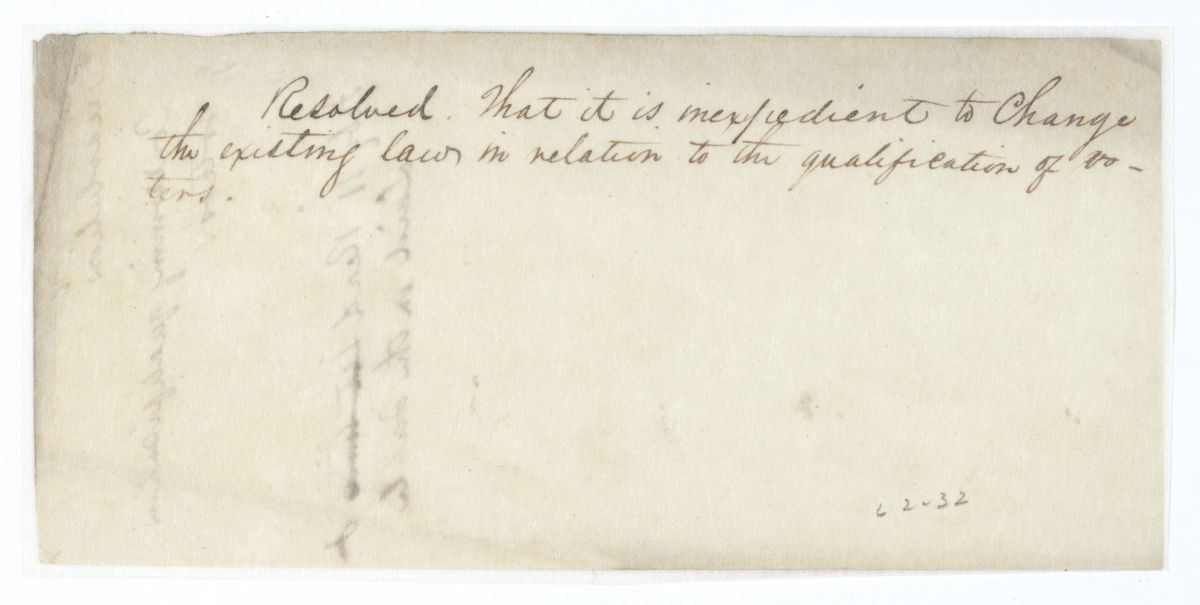 Resolved. That it is inexpedient to Change
the existing laws in relation to the qualification of vo-
ters.
62-32